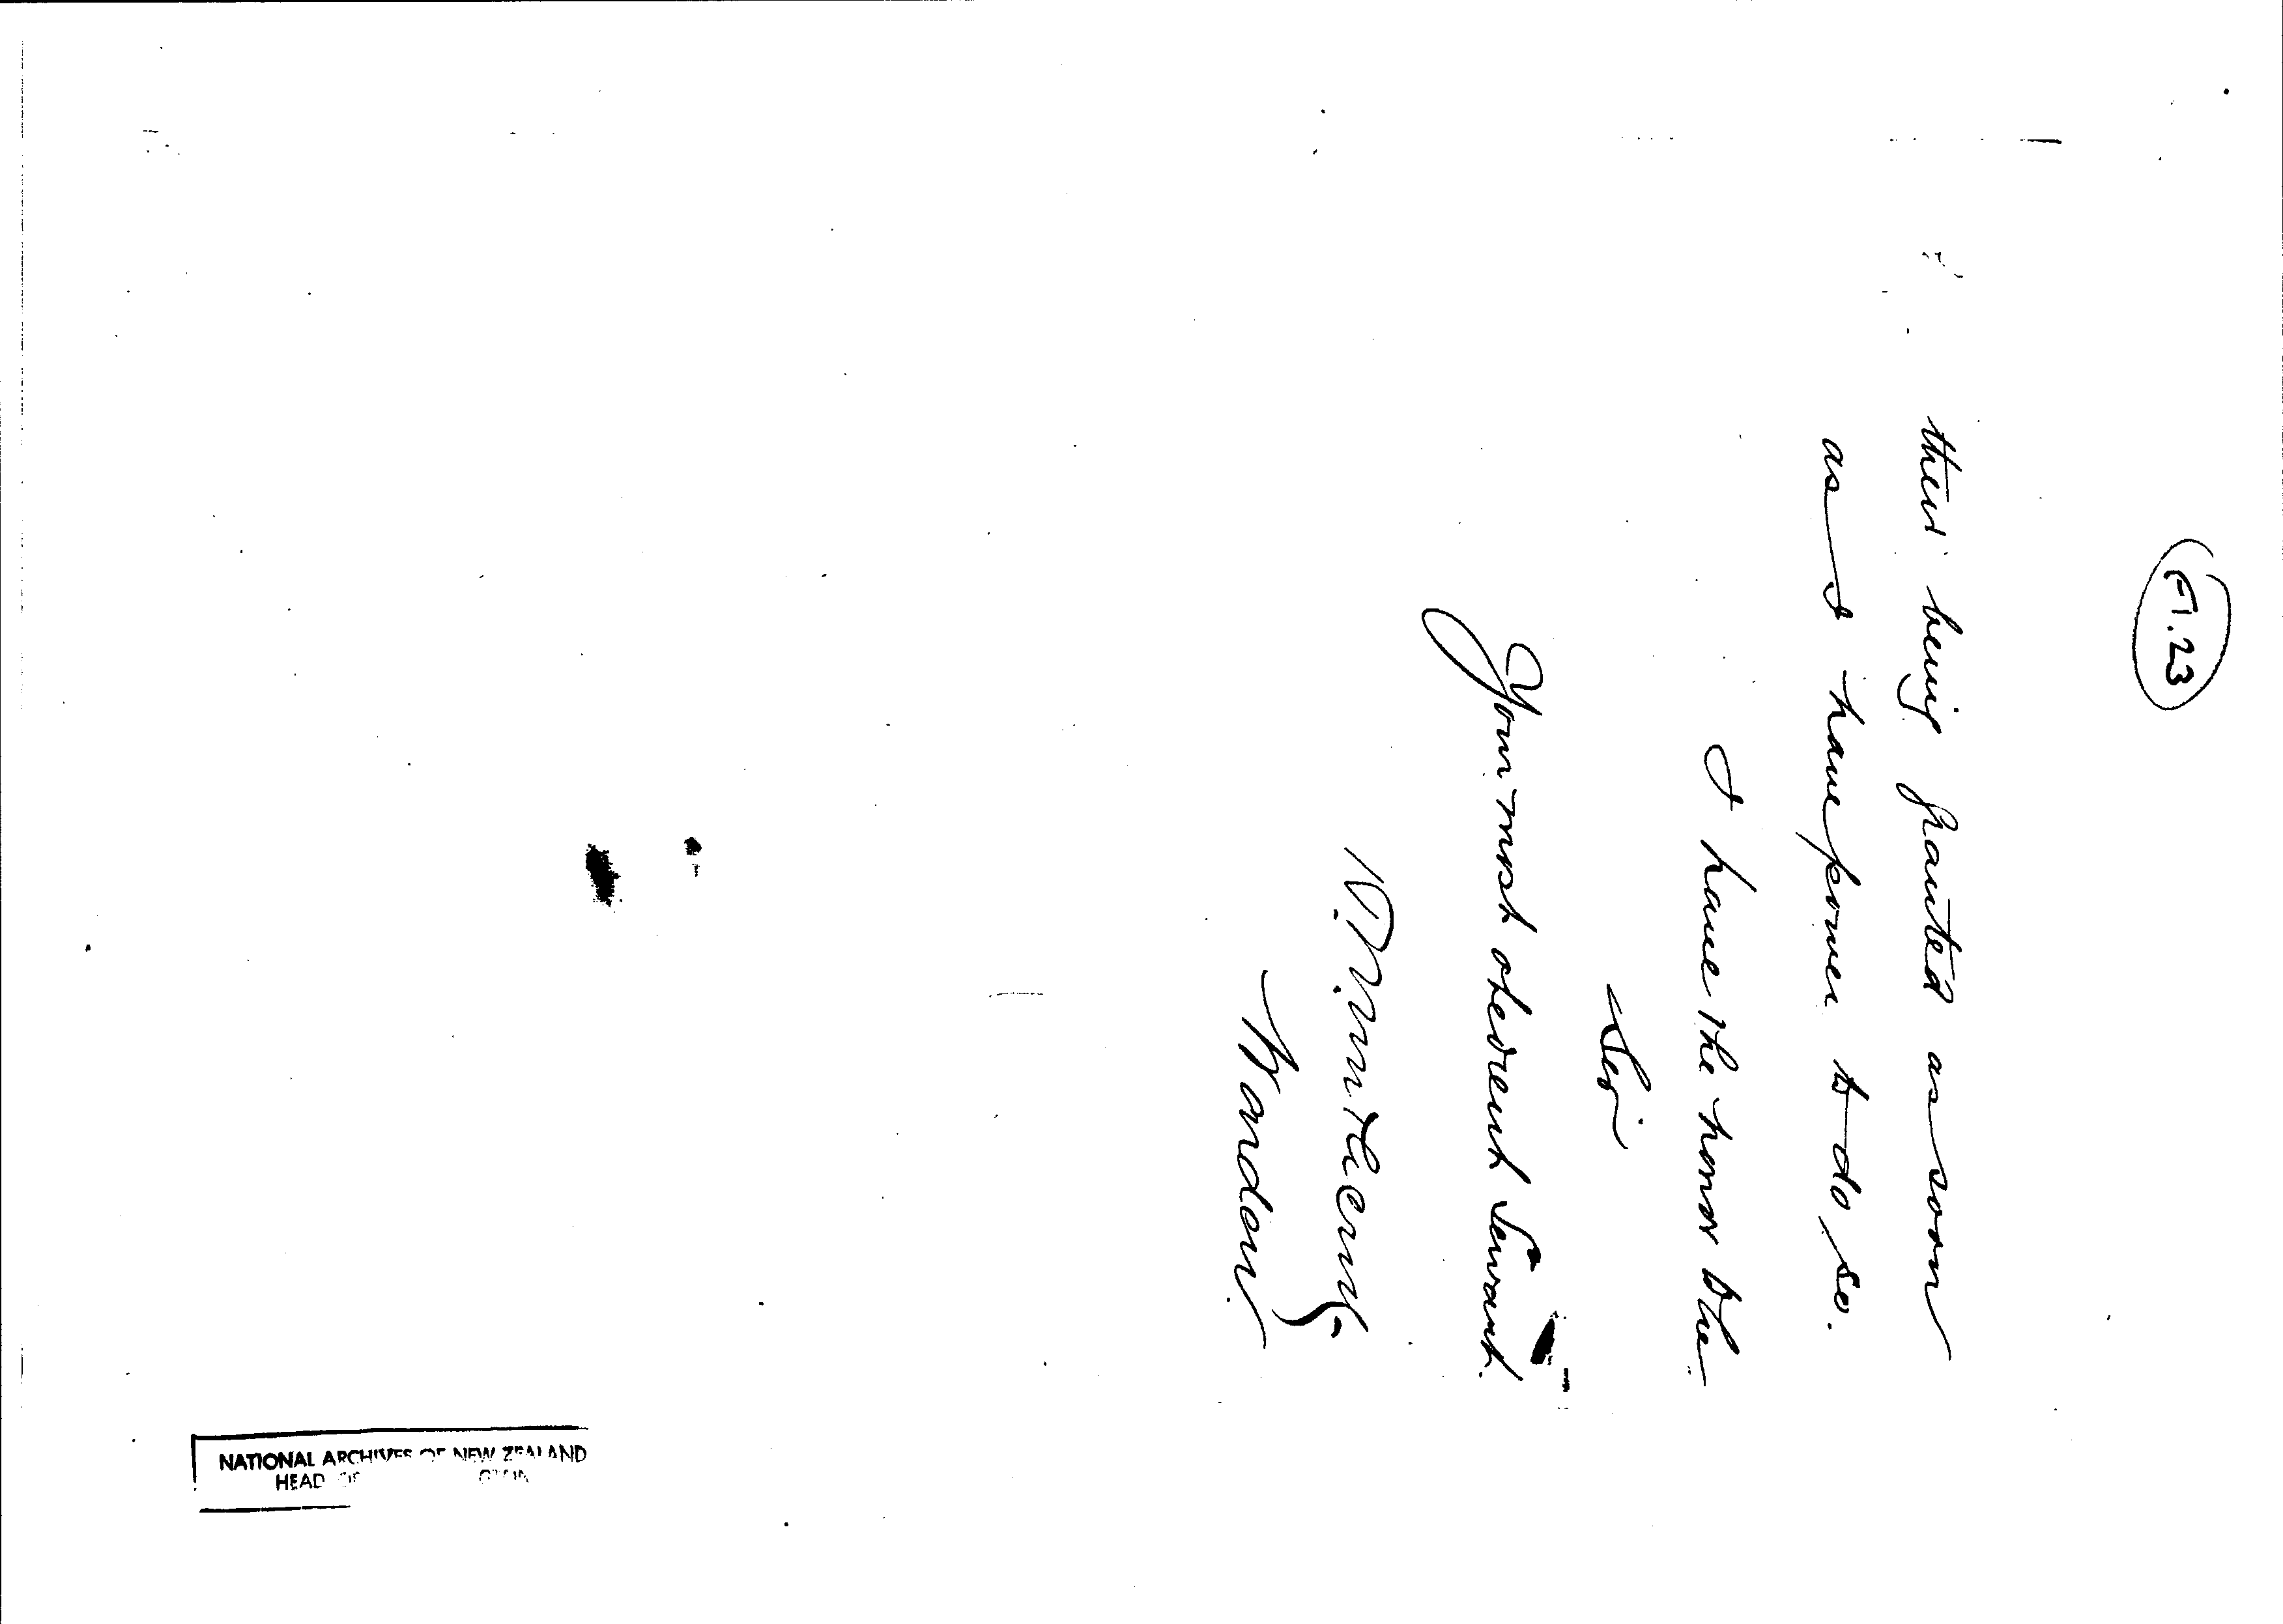 A1.23
their being granted as soon
as I have power to do so.
I have the honor to be
Sir
Your most obedient Servant.
Warden
NATIONAL ARCHIVES OF NEW ZEALAND
HEAD OF